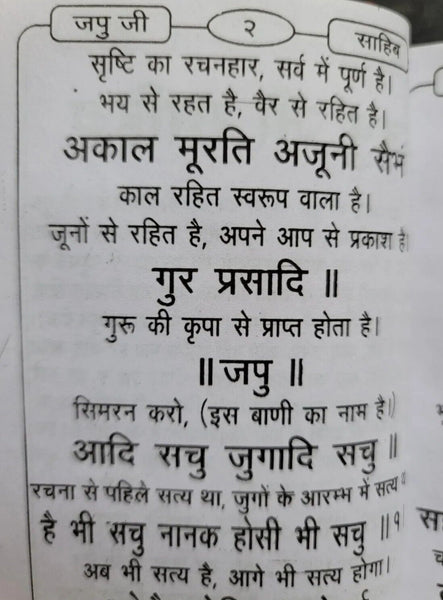 जपु जी २ साहिब
सृष्टि का रचनहार, सर्व में पूर्ण है।
भय से रहत है, वैर से रहित है।
अकाल मूरति अजूनी सैभं
काल रहित स्वरूप वाला है।
जूनों से रहित है, अपने आप से प्रकाश है।
गुर प्रसादि ॥
गुरू की कृपा से प्राप्त होता है।
॥ जपु ॥
सिमरन करो, (इस बाणी का नाम है।)
आदि सचु जुगादि सचु ॥
रचना से पहिले सत्य था, जुगों के आरम्भ में सत्य
है भी सचु नानक होसी भी सचु ॥१
अब भी सत्य है, आगे भी सत्य होगा।